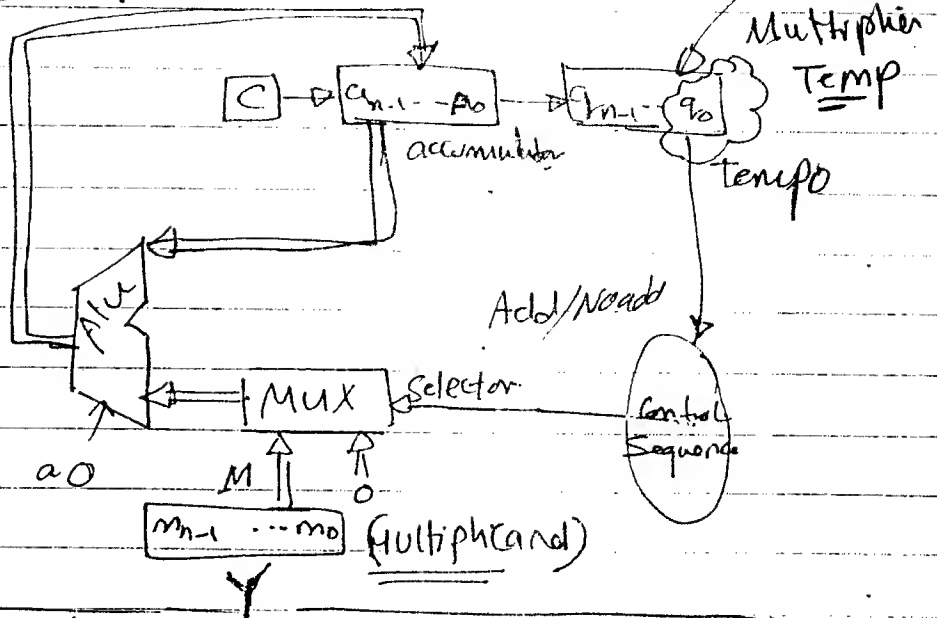 Multiplier
Temp
C
a n-1 --- a0
q n-1 -- q0
accumulator
tempo
Alu
Add/Noadd
MUX
selector
Control
Sequence
a0
M
0
m n-1 ... m0
(Multiplicand)
Y